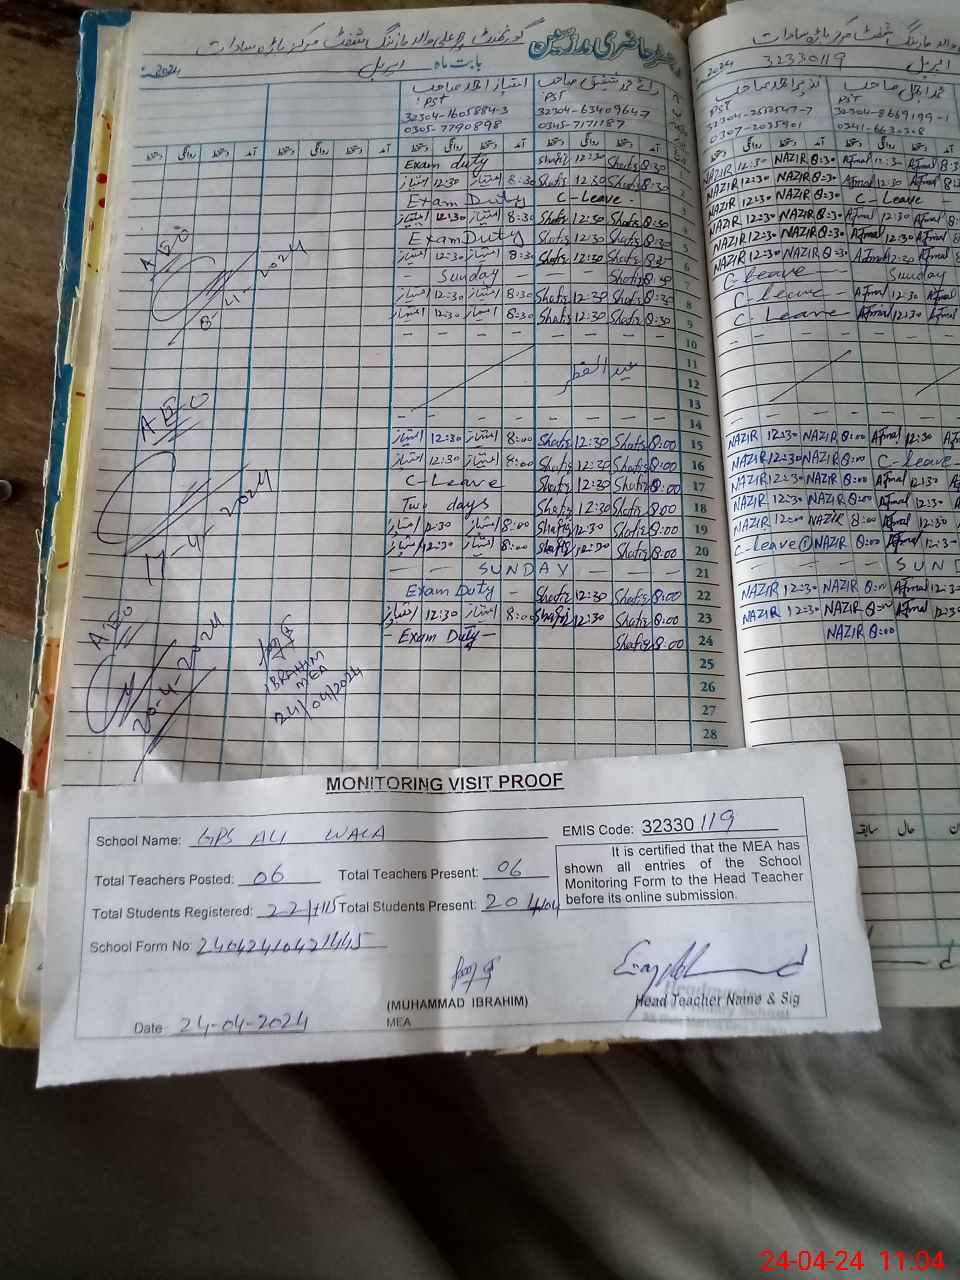 گورنمنٹ پرائمری علی والہ مارننگ شفٹ مرکز ماڑہ سادات
بابت ماہ اپریل 2024
امتیاز احمد صاحب
PST
32304-1605884-3
0305-7790898
رائے محمد شفیق صاحب
PST
32304-6340964-7
0345-7171187
32330119
اپریل 2024
نذیر احمد صاحب
PST
32304-2532547-7
0307-2035901
محمد اجمل صاحب
PST
32304-8669199-1
0341-6630308
دستخط روانگی دستخط آمد دستخط روانگی دستخط آمد دستخط روانگی دستخط آمد دستخط روانگی دستخط آمد
Exam duty Shafiq 12:30 Shafiq 8:30 1 NAZIR 12:30 NAZIR 8:30 Ajmal 12:30 Ajmal 8:30
امتیاز 12:30 امتیاز 8:30 Shafiq 12:30 Shafiq 8:30 2 NAZIR 12:30 NAZIR 8:30 Ajmal 12:30 Ajmal
Exam Duty C-Leave - 3 NAZIR 12:30 NAZIR 8:30 C-Leave -
امتیاز 12:30 امتیاز 8:30 Shafiq 12:30 Shafiq 8:30 4 NAZIR 12:30 NAZIR 8:30 Ajmal 12:30 Ajmal
Exam Duty Shafiq 12:30 Shafiq 8:30 5 NAZIR 12:30 NAZIR 8:30 Ajmal 12:30 Ajmal
امتیاز 12:30 امتیاز 8:30 Shafiq 12:30 Shafiq 8:30 6 NAZIR 12:30 NAZIR 8:30 Ajmal 12:30 Ajmal
- Sunday - - Shafiq 8:30 7 C-Leave - Sunday
امتیاز 12:30 امتیاز 8:30 Shafiq 12:30 Shafiq 8:30 8 C-Leave - Ajmal 12:30 Ajmal
امتیاز 12:30 امتیاز 8:30 Shafiq 12:30 Shafiq 8:30 9 C-Leave Ajmal 12:30 Ajmal
10
11
عید الفطر
12
13
14
امتیاز 12:30 امتیاز 8:00 Shafiq 12:30 Shafiq 8:00 15 NAZIR 12:30 NAZIR 8:00 Ajmal 12:30
امتیاز 12:30 امتیاز 8:00 Shafiq 12:30 Shafiq 8:00 16 NAZIR 12:30 NAZIR 8:00 C-Leave -
C-Leave Shafiq 12:30 Shafiq 8:00 17 NAZIR 12:30 NAZIR 8:00 Ajmal 12:30
Two days Shafiq 12:30 Shafiq 8:00 18 NAZIR 12:30 NAZIR 8:00 Ajmal 12:30
امتیاز 12:30 امتیاز 8:00 Shafiq 12:30 Shafiq 8:00 19 NAZIR 12:00 NAZIR 8:00 Ajmal 12:30
امتیاز 12:30 امتیاز 8:00 Shafiq 12:30 Shafiq 8:00 20 C-Leave ① NAZIR 8:00 Ajmal 12:30
- - SUNDAY - - 21 - - SUND
Exam Duty - Shafiq 12:30 Shafiq 8:00 22 NAZIR 12:30 NAZIR 8:00 Ajmal 12:30
امتیاز 12:30 امتیاز 8:00 Shafiq 12:30 Shafiq 8:00 23 NAZIR 12:30 NAZIR 8:00 Ajmal 12:30
- Exam Duty - Shafiq 8:00 24 NAZIR 8:00
25
26
27
28
AEO
8-4-2024
AEO
17-4-2024
AEO
20-4-2024
IBRAHIM
MEA
24/04/2024
سابقہ حال
MONITORING VISIT PROOF
School Name: GPS ALI WALA
EMIS Code: 32330119
Total Teachers Posted: 06 Total Teachers Present: 06
Total Students Registered: Total Students Present:
It is certified that the MEA has shown all entries of the School Monitoring Form to the Head Teacher before its online submission.
School Form No: 24042410421445
(MUHAMMAD IBRAHIM)
MEA
Date: 24-04-2024
Headmaster
Head Teacher Name & Sig
24-04-24 11:04